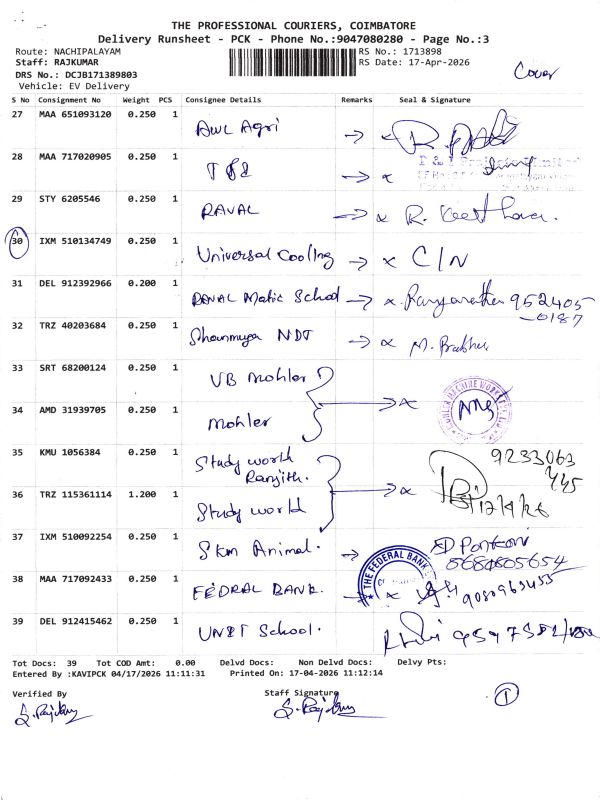 THE PROFESSIONAL COURIERS, COIMBATORE
Delivery Runsheet - PCK - Phone No.:9047080280 - Page No.:3
Route: NACHIPALAYAM RS No.: 1713898
Staff: RAJKUMAR RS Date: 17-Apr-2026
DRS No.: DCJB171389803 Cover
Vehicle: EV Delivery
S No Consignment No Weight PCS Consignee Details Remarks Seal & Signature
27 MAA 651093120 0.250 1 AWL Agri
28 MAA 717020905 0.250 1
29 STY 6205546 0.250 1 RAVAL
30 IXM 510134749 0.250 1 Universal Cooling C/N
31 DEL 912392966 0.200 1 RAVAL Matic School 952405
-0187
32 TRZ 40203684 0.250 1 Shanmuga NDT
33 SRT 68200124 0.250 1 VB Mohler
34 AMD 31939705 0.250 1 Mohler
35 KMU 1056384 0.250 1 Study world 9233063
Ranjith. 445
36 TRZ 115361114 1.200 1 Study world
37 IXM 510092254 0.250 1 SKM Animal.
38 MAA 717092433 0.250 1 FEDRAL BANK. THE FEDERAL BANK
39 DEL 912415462 0.250 1 UNIT School.
Tot Docs: 39 Tot COD Amt: 0.00 Delvd Docs: Non Delvd Docs: Delvy Pts:
Entered By :KAVIPCK 04/17/2026 11:11:31 Printed On: 17-04-2026 11:12:14
Verified By Staff Signature
S. Rajkumar S. Rajkumar
1